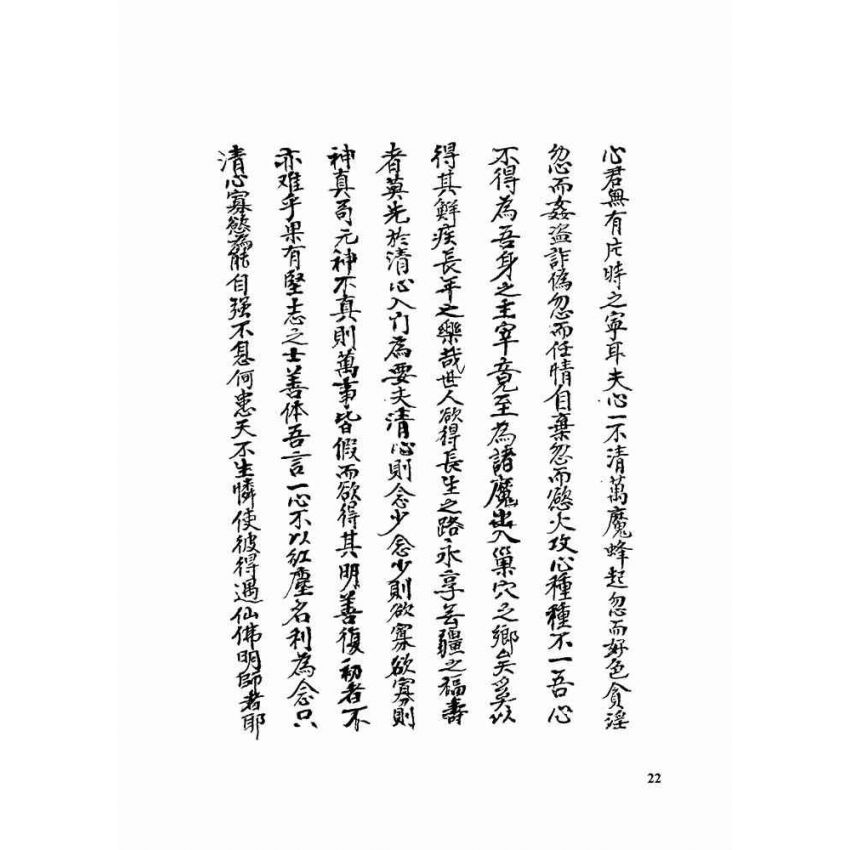 心君無有片時之寧耳夫心一不清萬魔蜂起忽而好色貪淫
忽而姦盗詐偽忽而任情自棄忽而慾火攻心種種不一吾心
不得為吾身之主宰竟至為諸魔出入巢穴之鄉矣奚以
得其鮮疾長年之樂哉世人欲得長生之路永享無疆之福壽
者英先於清心入门為要夫清心則念少念少則欲寡欲寡則
神真苟元神不真則萬事皆假而欲得其明善復初者不
亦难乎果有堅志之士善体吾言一心不以紅塵名利為念只
清心寡慾為能自强不息何患天不生憐使彼得遇仙佛明師者耶
22